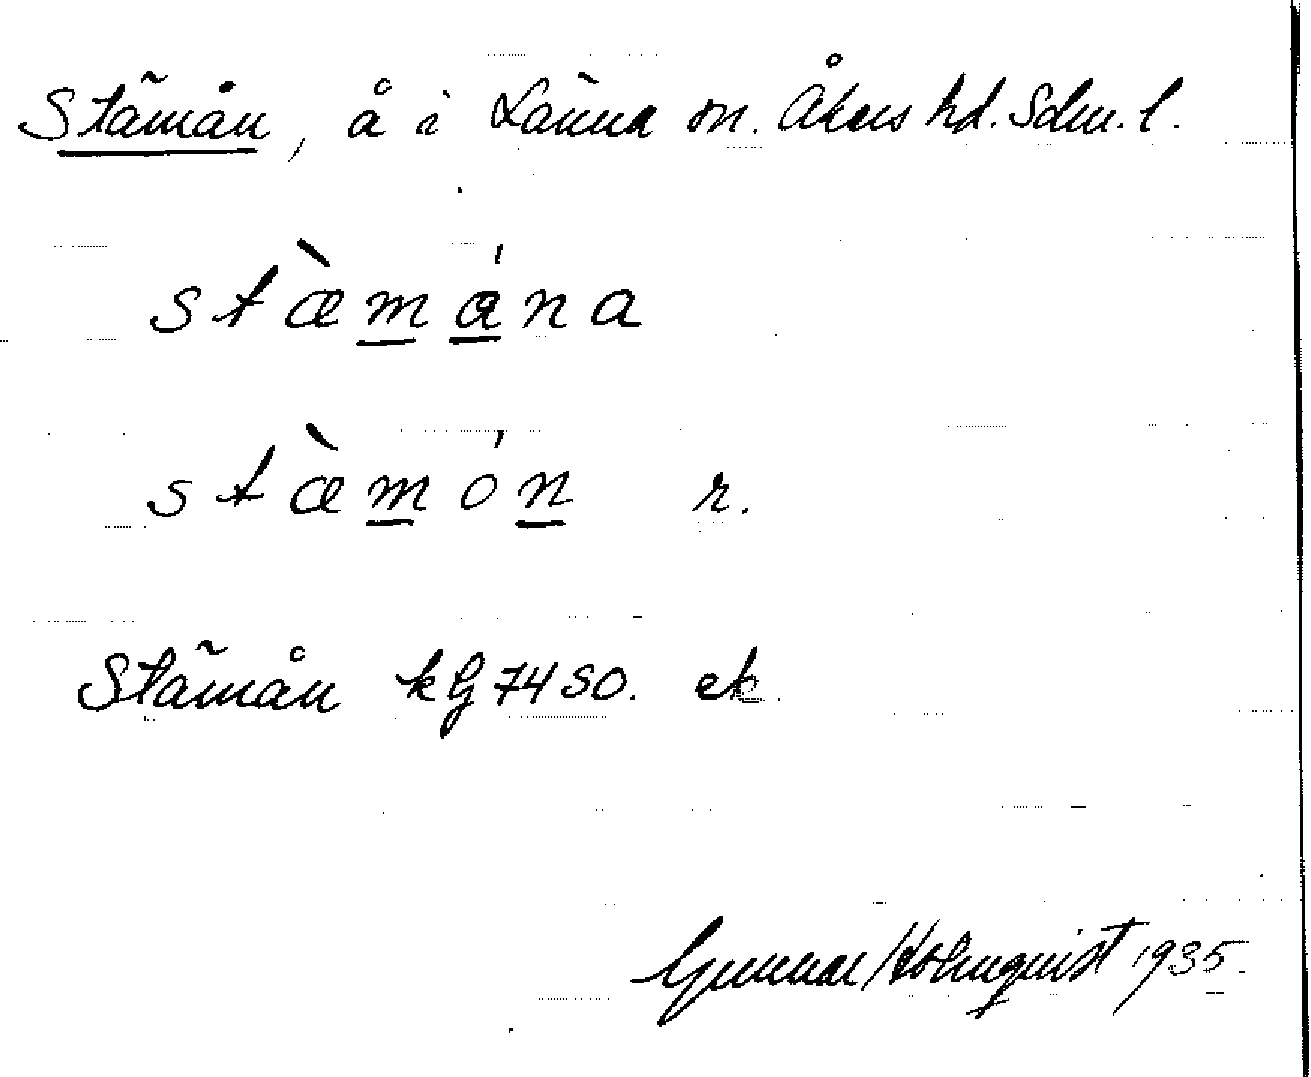 Stämån, å i Länna sn. Åkers hd. Sdm. l.
stæ̀mána
stæ̀món r.
Stämån kG 74 SO. ek.
Gunnar Holmquist 1935.